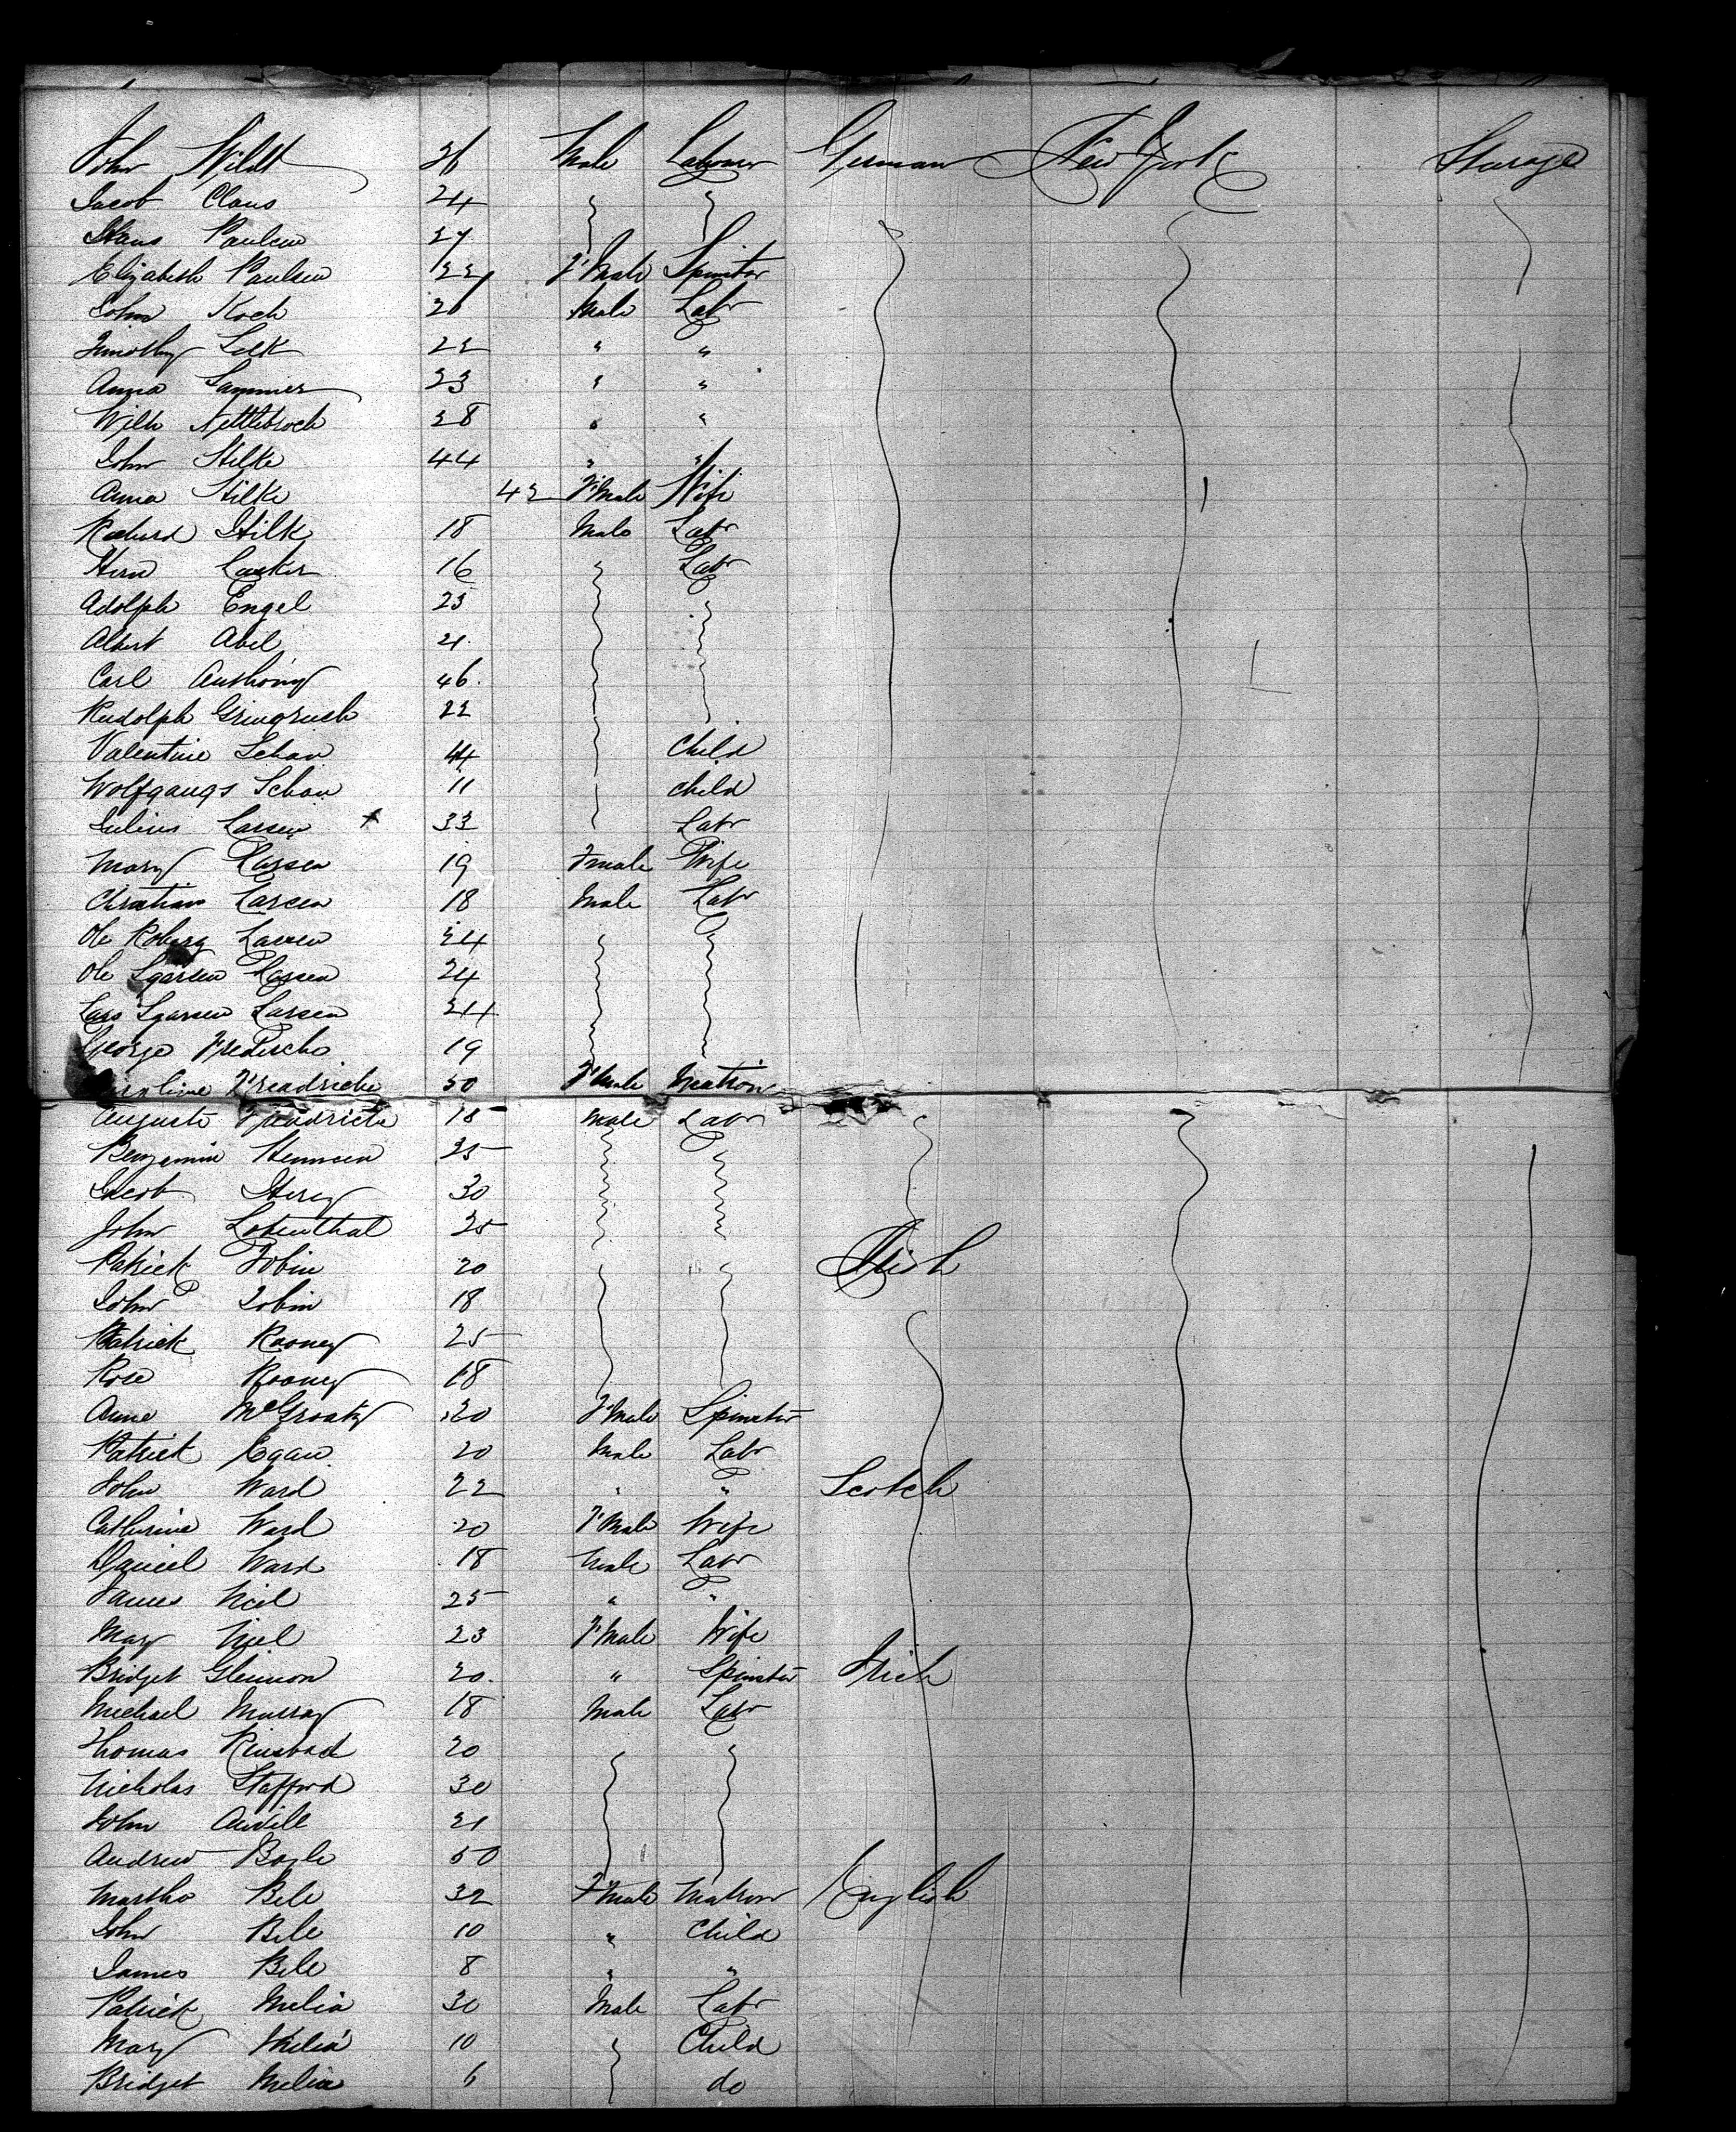 John Wildt 36 Male Labourer German New York Steerage
Jacob Claus 24
Hans Paulsen 27
Elizabeth Paulsen 22 F'Male Spinster
John Koch 26 Male Labr
Timothy Selk 22 " "
Anna Sammier 23 " "
Wilh Nettlebroch 28 " "
John Hilke 44 " "
Anna Hilke 42 F'Male Wife
Richard Hilke 18 Male Labr
Hern Lauker 16 Labr
Adolph Engel 25
Albert Abel 21
Carl Anthony 46
Rudolph 22
Valentine Schau 44 Child
Wolfgangs Schau 11 child
Julius Larsen 33 Labr
Mary Larsen 19 Fmale Wife
Christian Larsen 18 Male Labr
Ole Roberg Larsen 24
Ole Larsen 24
Lars Larsen 24
George Fredericks 19
Caroline F'readricke 50 F'Male Matron
Auguste Freadricke 18 Male Labr
Benjamin Hennsen 25
Jacob 30
John Lobenthal 25
Patrick Tobin 20 Irish
John Tobin 18
Patrick Rooney 25
Rose Rooney 18
Anne McGroaty 20 F'Male Spinster
Patrick Egan 20 Male Labr
John Ward 22 " " Scotch
Catherine Ward 20 F'Male Wife
Daniel Ward 18 Male Labr
James Neil 25 " "
Mary Niel 23 F'Male Wife
Bridget Glennon 20 " Spinster Irish
Michael Murray 18 Male Labr
Thomas 20
Nicholas Stafford 30
John 21
Andrew Boyle 50
Martha Bele 32 F'Male Matron English
John Bele 10 " Child
James Bele 8 " "
Patrick Melia 30 Male Labr
Mary Melia 10 Child
Bridget Melia 6 do